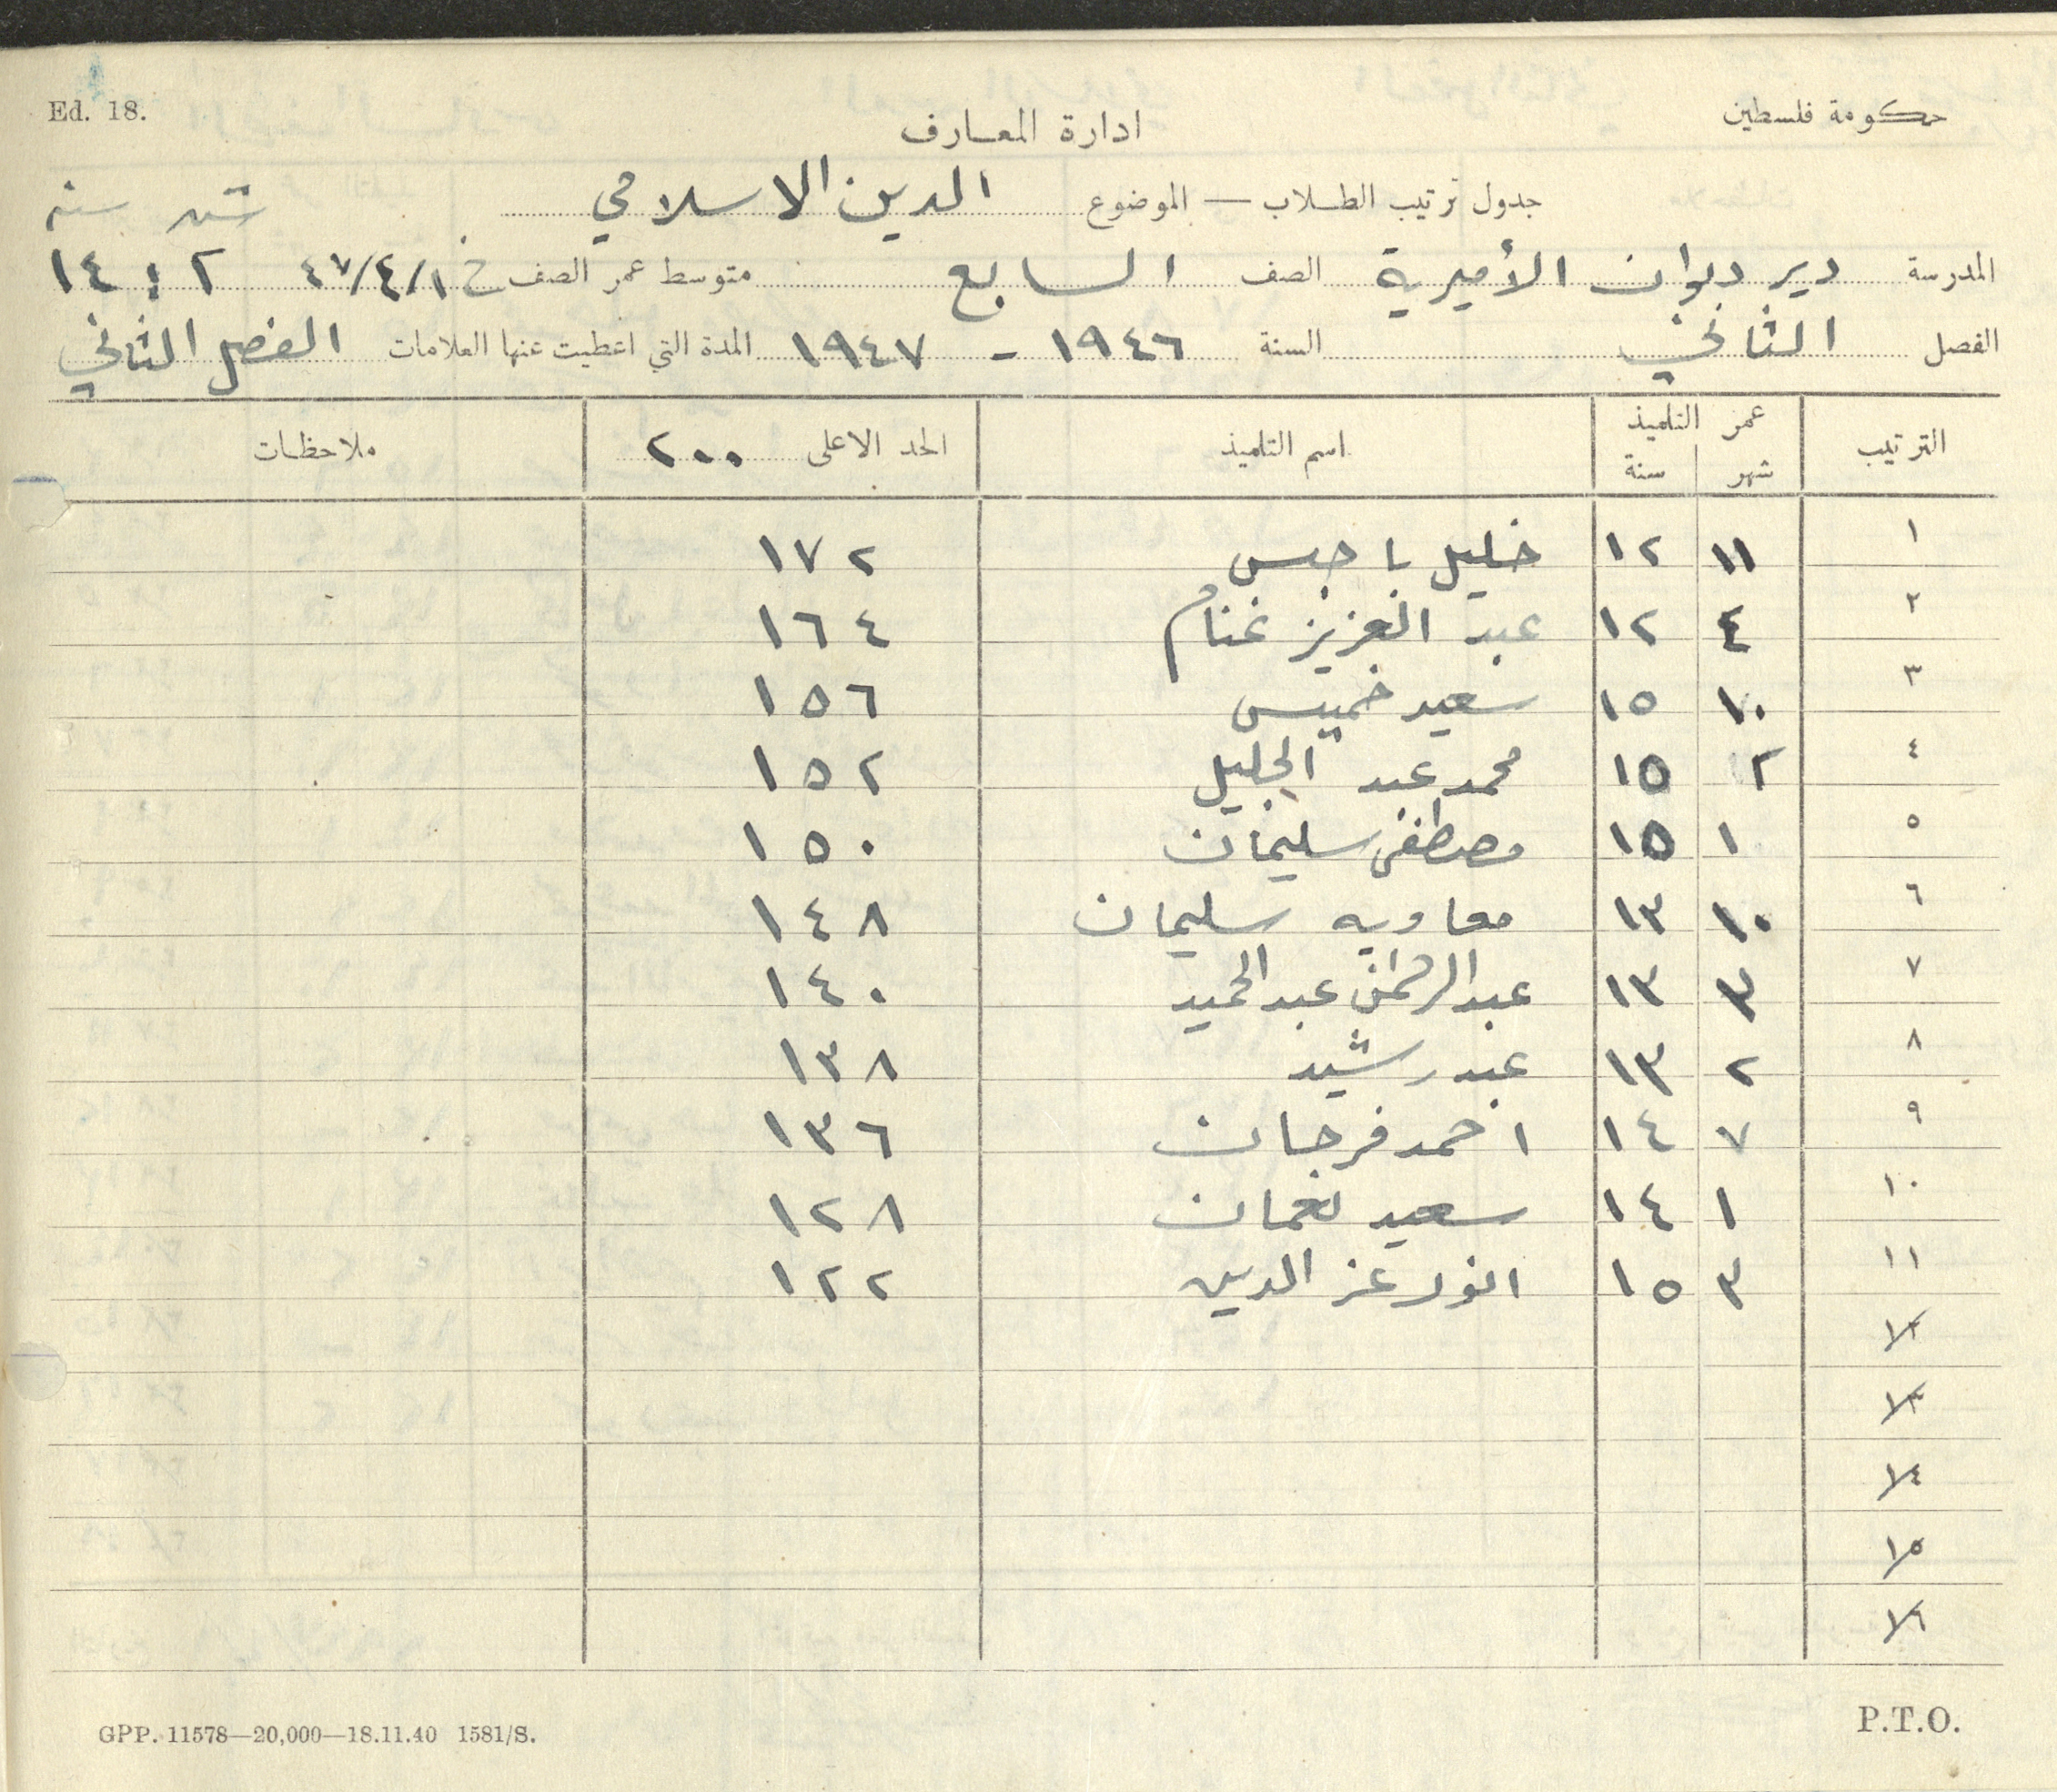 Ed. 18.
حكومة فلسطين
ادارة المعارف
جدول ترتيب الطلاب — الموضوع الدين الاسلامي
شهر سنه
المدرسة دير ديوان الأميرية الصف السابع متوسط عمر الصف في ٤٧/٤/١ ٢ : ١٤
الفصل الثاني السنة ١٩٤٦ - ١٩٤٧ المدة التي اعطيت عنها العلامات الفصل الثاني
الترتيب عمر التلميذ اسم التلميذ الحد الاعلى ٢٠٠ ملاحظات
شهر سنة
١ ١١ ١٢ خليل باجس ١٧٢
٢ ٤ ١٢ عبد العزيز غنام ١٦٤
٣ ١٠ ١٥ سعيد خميس ١٥٦
٤ ٢ ١٥ محمد عبد الجليل ١٥٢
٥ ١ ١٥ مصطفى سليمان ١٥٠
٦ ١٠ ١٣ معاويه سليمان ١٤٨
٧ ٣ ١٣ عبد الرحمن عبد الحميد ١٤٠
٨ ٢ ١٣ عبد رشيد ١٣٨
٩ ٧ ١٤ احمد فرحان ١٣٦
١٠ ١ ١٤ سعيد نعمان ١٢٨
١١ ٣ ١٥ انور عز الدين ١٢٢
١٢
١٣
١٤
١٥
١٦
GPP. 11578—20,000—18.11.40 1581/S.
P.T.O.